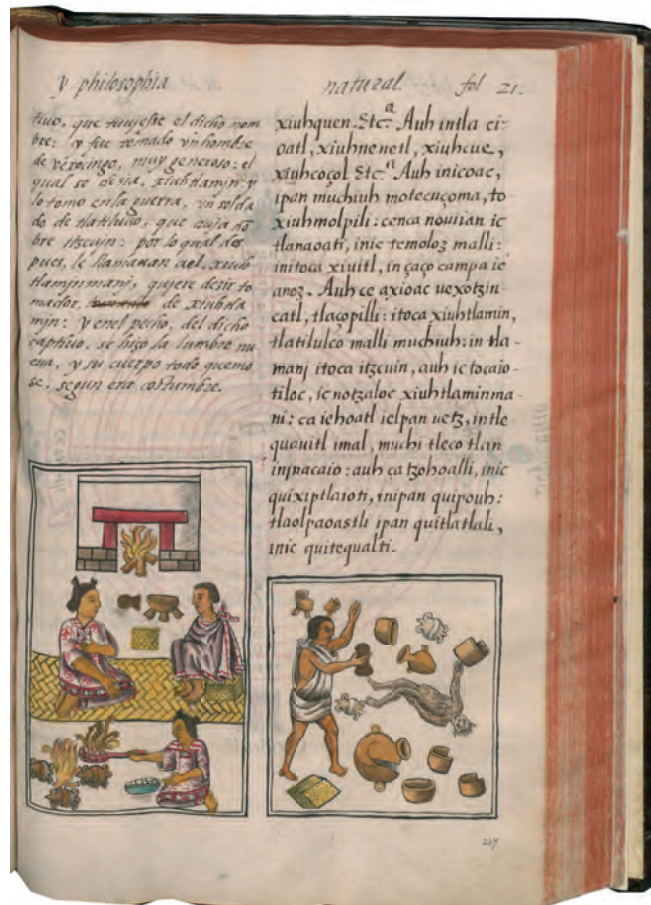 y philosophia
natural. fol 21.
tiuo, que tuujesse el dicho nom
bre: y fue tomado vn hombre
de vexocingo, muy generoso: el
qual se dezia, xiuhtlamjn: y
lo tomo en la guerra, vn solda
do de tlatilulco, que auja nõ
bre itzcuin: por lo qual des
pues, le llamauan ael, xiuh
tlamjnmanj, qujere dezir to
mador, de xiuhtla
mjn: y enel pecho, del dicho
captiuo, se hizo la lumbre nu
eua, y su cuerpo todo quemo
se, segun era costumbre.
xiuhquen. Etc.ª Auh intla ci-
oatl, xiuhnenetl, xiuhcue,
xiuhcoçol Etc.ª Auh inicoac,
ipan muchiuh motecuçoma, to-
xiuhmolpili: cenca nouiian ic
tlanaoati, inic temoloz malli:
initoca xiuitl, in çaço campa ic
anoz. Auh ce axioac uexotzin-
catl, tlaçopilli: itoca xiuhtlamin,
tlatilulco malli muchiuh: in tla-
manj itoca itzcuin, auh ic tocaio-
tiloc, ic notzaloc xiuhtlaminma-
ni: ca iehoatl ielpan uetz, in tle
quauitl imal, muchi tleco tlan
injnacaio: auh ça tzohoalli, inic
quixiptlaioti, inipan quipouh:
tlaolpaoastli ipan quitlatlali,
inic quitequalti.
227